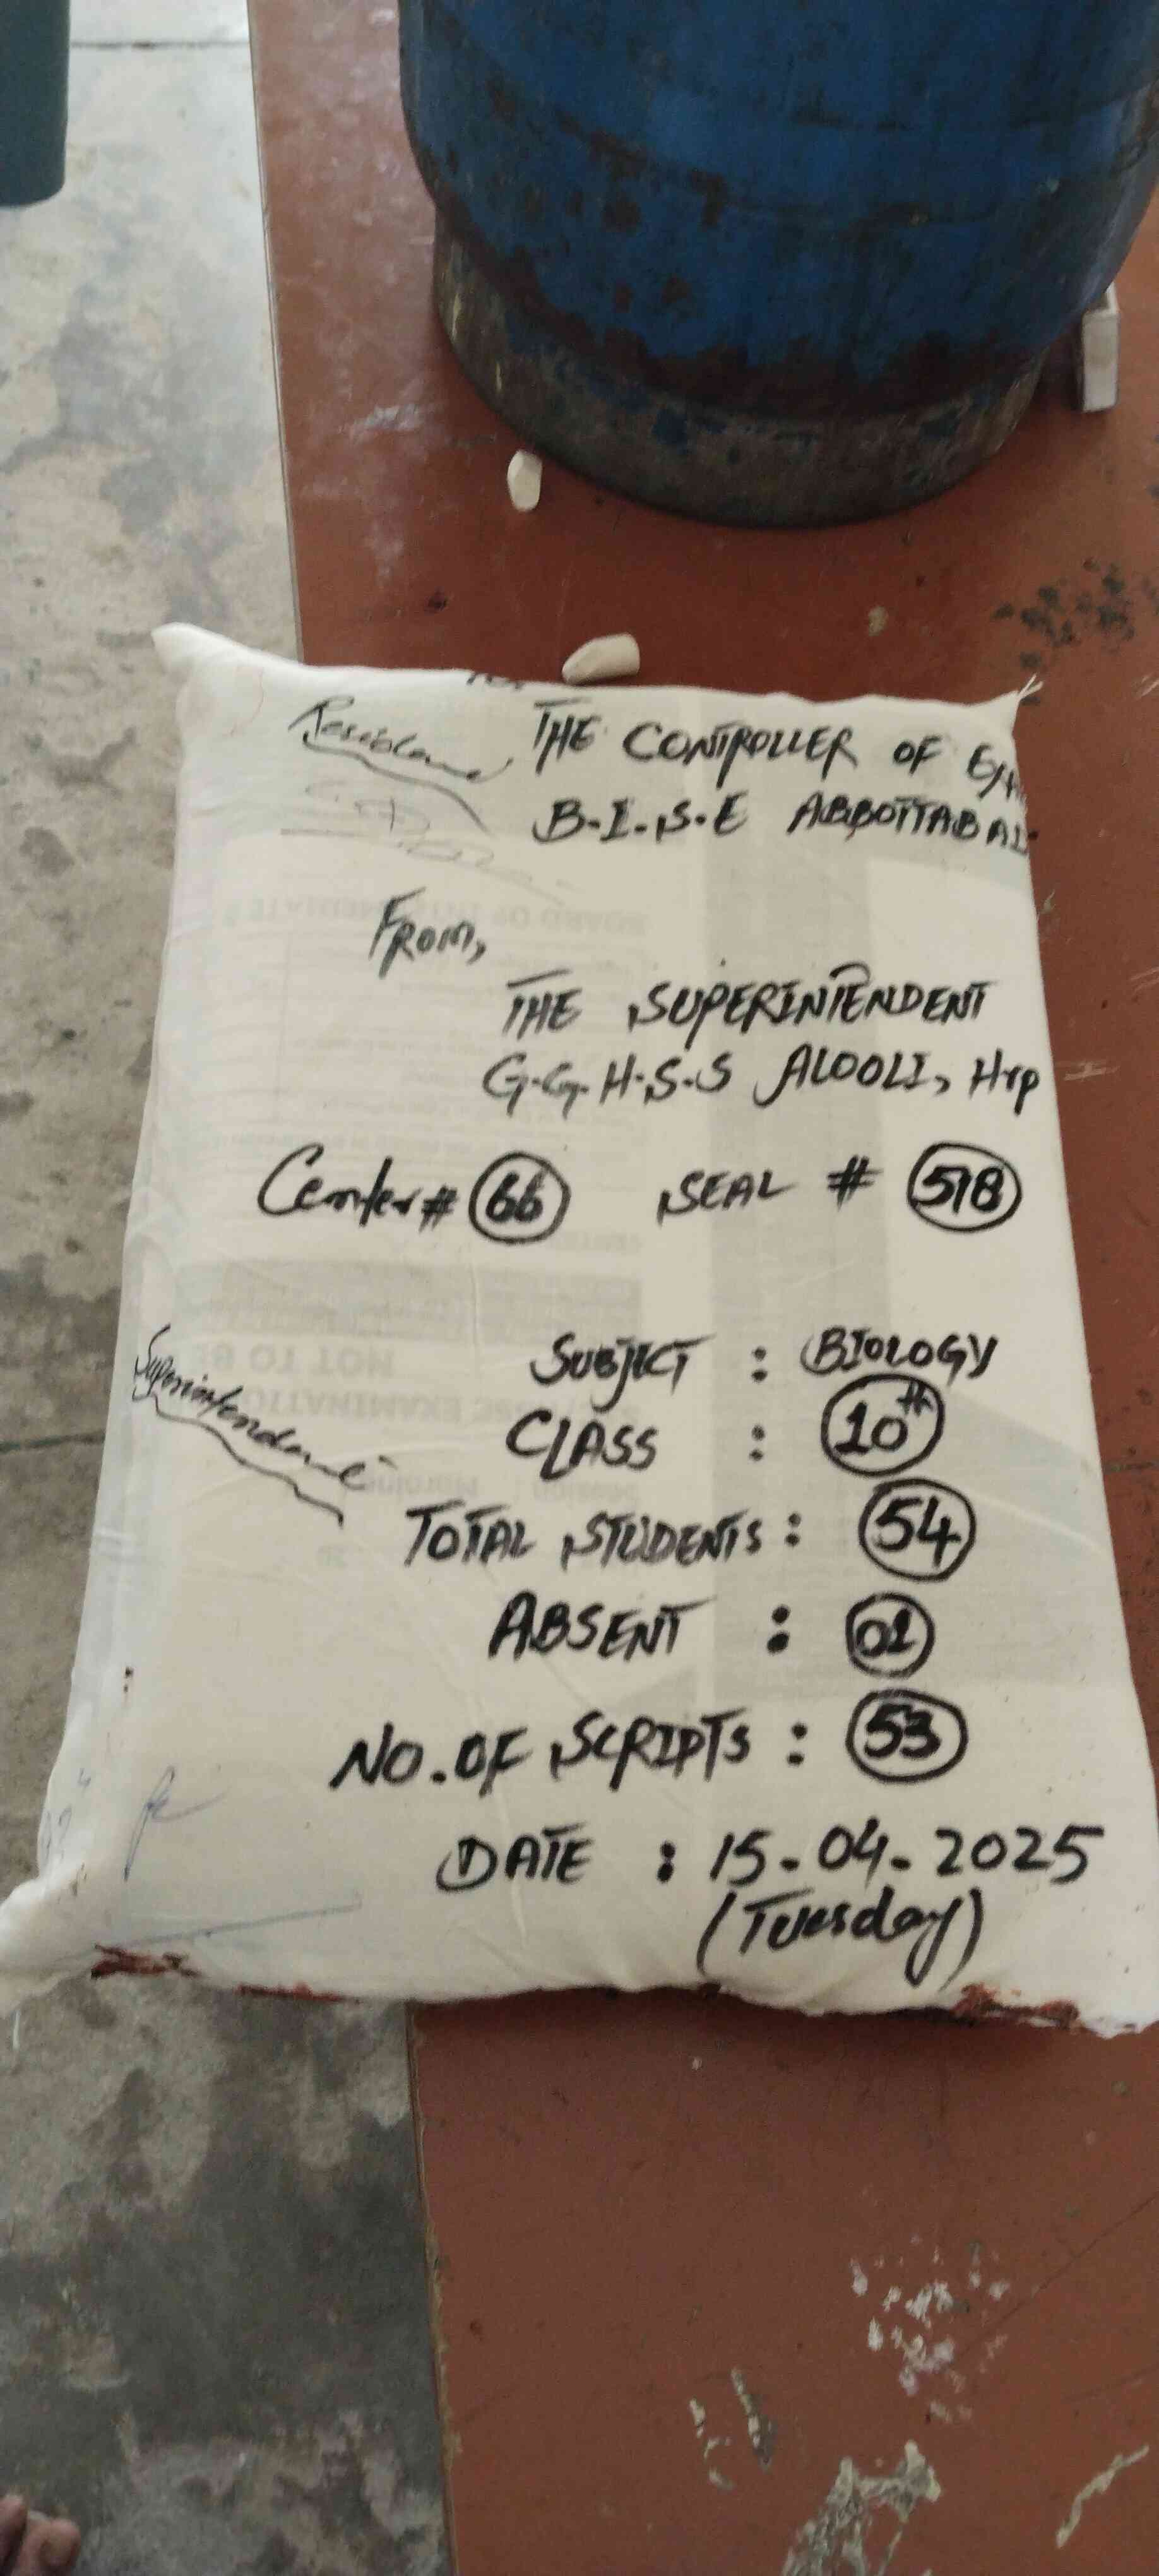 THE CONTROLLER OF
B.I.S.E ABBOTTABAD
From,
THE SUPERINTENDENT
G.G.H.S.S ALOOLI, Hrp
Center # 66 SEAL # 518
SUBJECT : BIOLOGY
CLASS : 10th
Superintendent
TOTAL STUDENTS : 54
ABSENT : 01
NO. OF SCRIPTS : 53
DATE : 15-04-2025
(Tuesday)